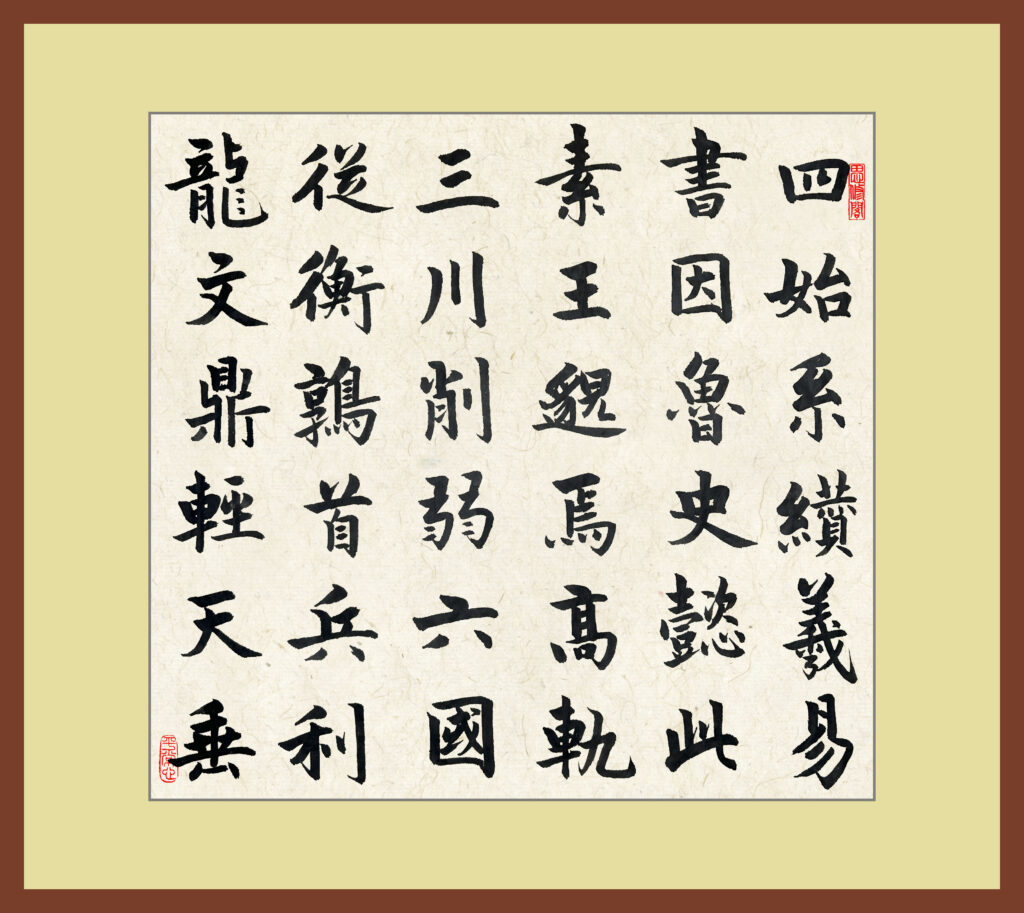 四始系纘羲易
書因魯史懿此
素王邈焉高軌
三川削弱六國
從衡鶉首兵利
龍文鼎輕天垂